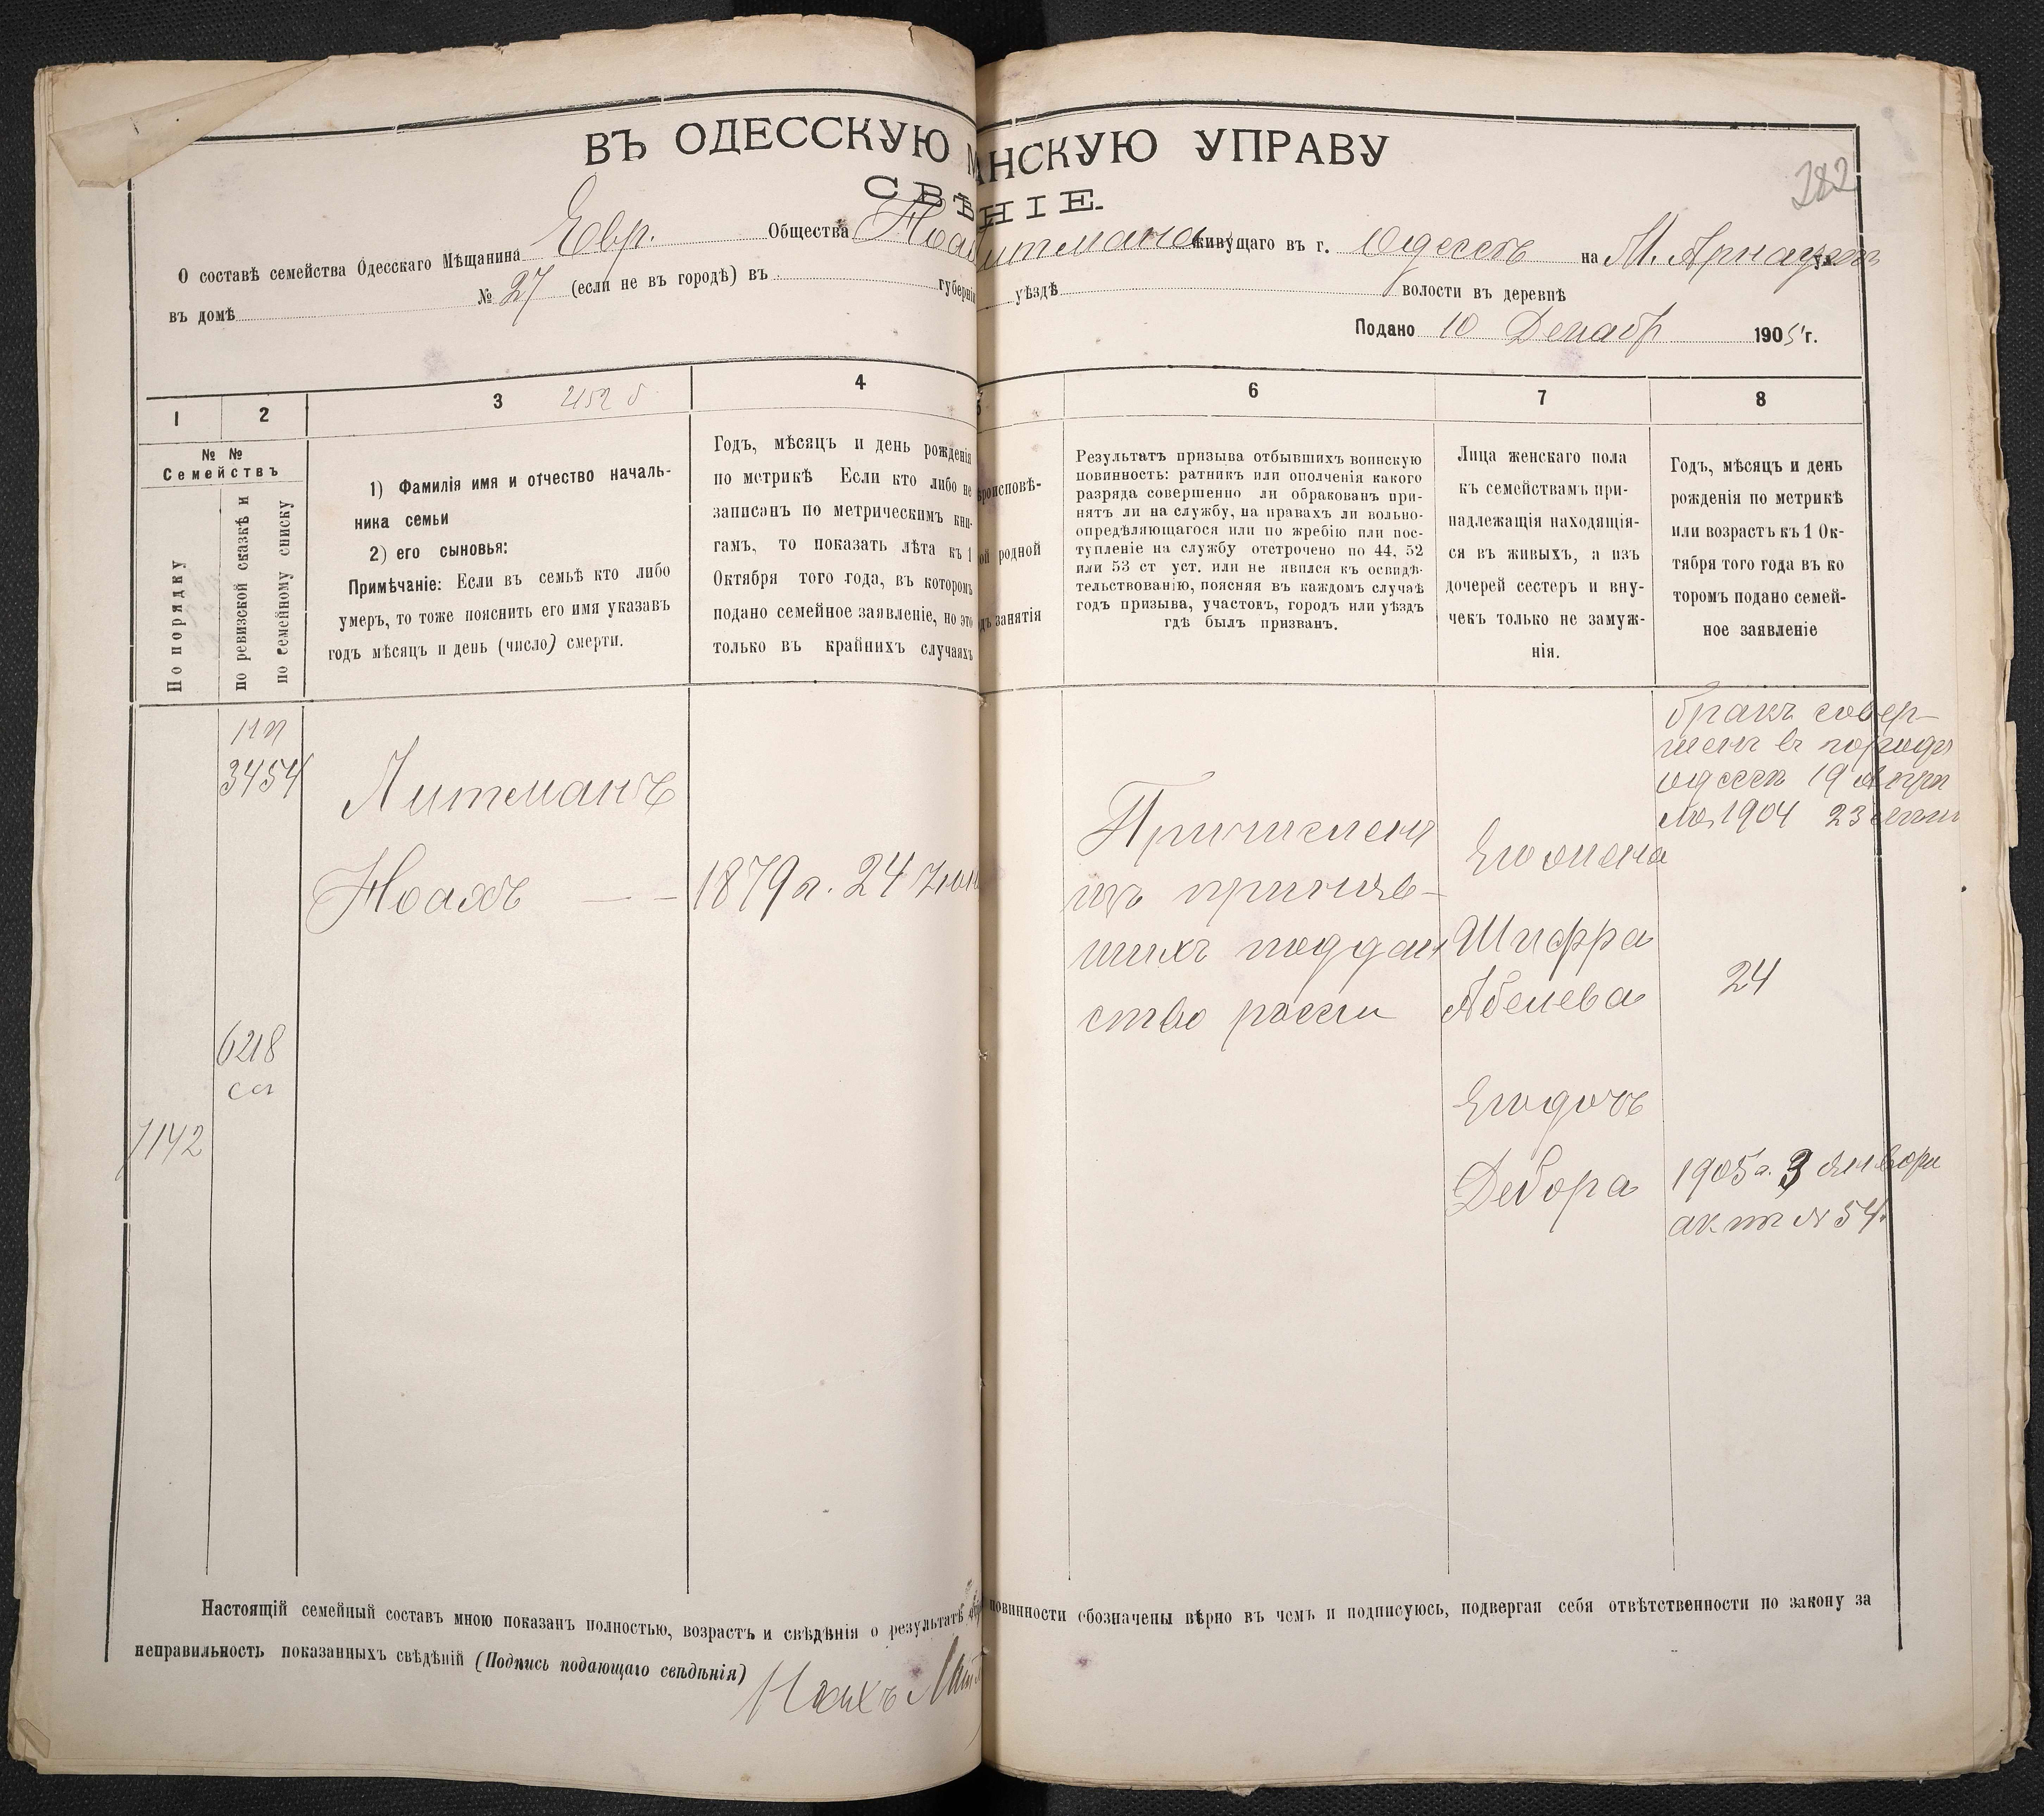 ВЪ ОДЕССКУЮ МАНСКУЮ УПРАВУ
СВѢНІЕ.
282
О составѣ семейства Одесскаго Мѣщанина Евр. Общества Ноа Литмана живущаго въ г. Одессѣ на М. Арнаутск
въ домѣ № 27 (если не въ городѣ) въ губерніи уѣздѣ волости въ деревнѣ
Подано 10 Декабр 1905 г.
1 2 3 4 5 6 7 8
№ №
Семействъ
По порядку
по ревизской сказкѣ и
по семейному списку
1) Фамилія имя и отчество началь-
ника семьи
2) его сыновья:
Примѣчаніе: Если въ семьѣ кто либо
умеръ, то тоже пояснить его имя указавъ
годъ мѣсяцъ и день (число) смерти.
Годъ, мѣсяцъ и день рожденія
по метрикѣ Если кто либо не
записанъ по метрическимъ кни-
гамъ, то показать лѣта къ 1
Октября того года, въ которомъ
подано семейное заявленіе, но это
только въ крайнихъ случаяхъ
роисповѣ-
ой родной
дъ занятія
Результатъ призыва отбывшихъ воинскую
повинность: ратникъ или ополченія какого
разряда совершенно ли обракованъ при-
нятъ ли на службу, на правахъ ли вольно-
опредѣляющагося или по жребію или пос-
тупленіе на службу отстрочено по 44, 52
или 53 ст уст. или не явился къ освидѣ-
тельствованію, поясняя въ каждомъ случаѣ
годъ призыва, участокъ, городъ или уѣздъ
гдѣ былъ призванъ.
Лица женскаго пола
къ семействамъ при-
надлежащія находящія-
ся въ живыхъ, а изъ
дочерей сестеръ и вну-
чекъ только не замуж-
нія.
Годъ, мѣсяцъ и день
рожденія по метрикѣ
или возрастъ къ 1 Ок-
тября того года въ ко
торомъ подано семей-
ное заявленіе
3454
Литманъ
Ноахъ 1879 г. 24 Июн
6218
7142
Причислен
изъ приняв-
шихъ поддан
ство россіи
Его жена
Шифра
Абелева
24
Его дочь
Дебора
бракъ совер-
шенъ въ городѣ
одессѣ 19 апрѣ
ля 1904
1905 г. 3 января
актъ № 54.
Настоящій семейный составъ мною показанъ полностью, возрастъ и свѣдѣнія о результатѣ повинности обозначены вѣрно въ чемъ и подписуюсь, подвергая себя отвѣтственности по закону за
неправильность показанныхъ свѣдѣній (Подпись подающаго свѣдѣнія) Ноахъ Лит